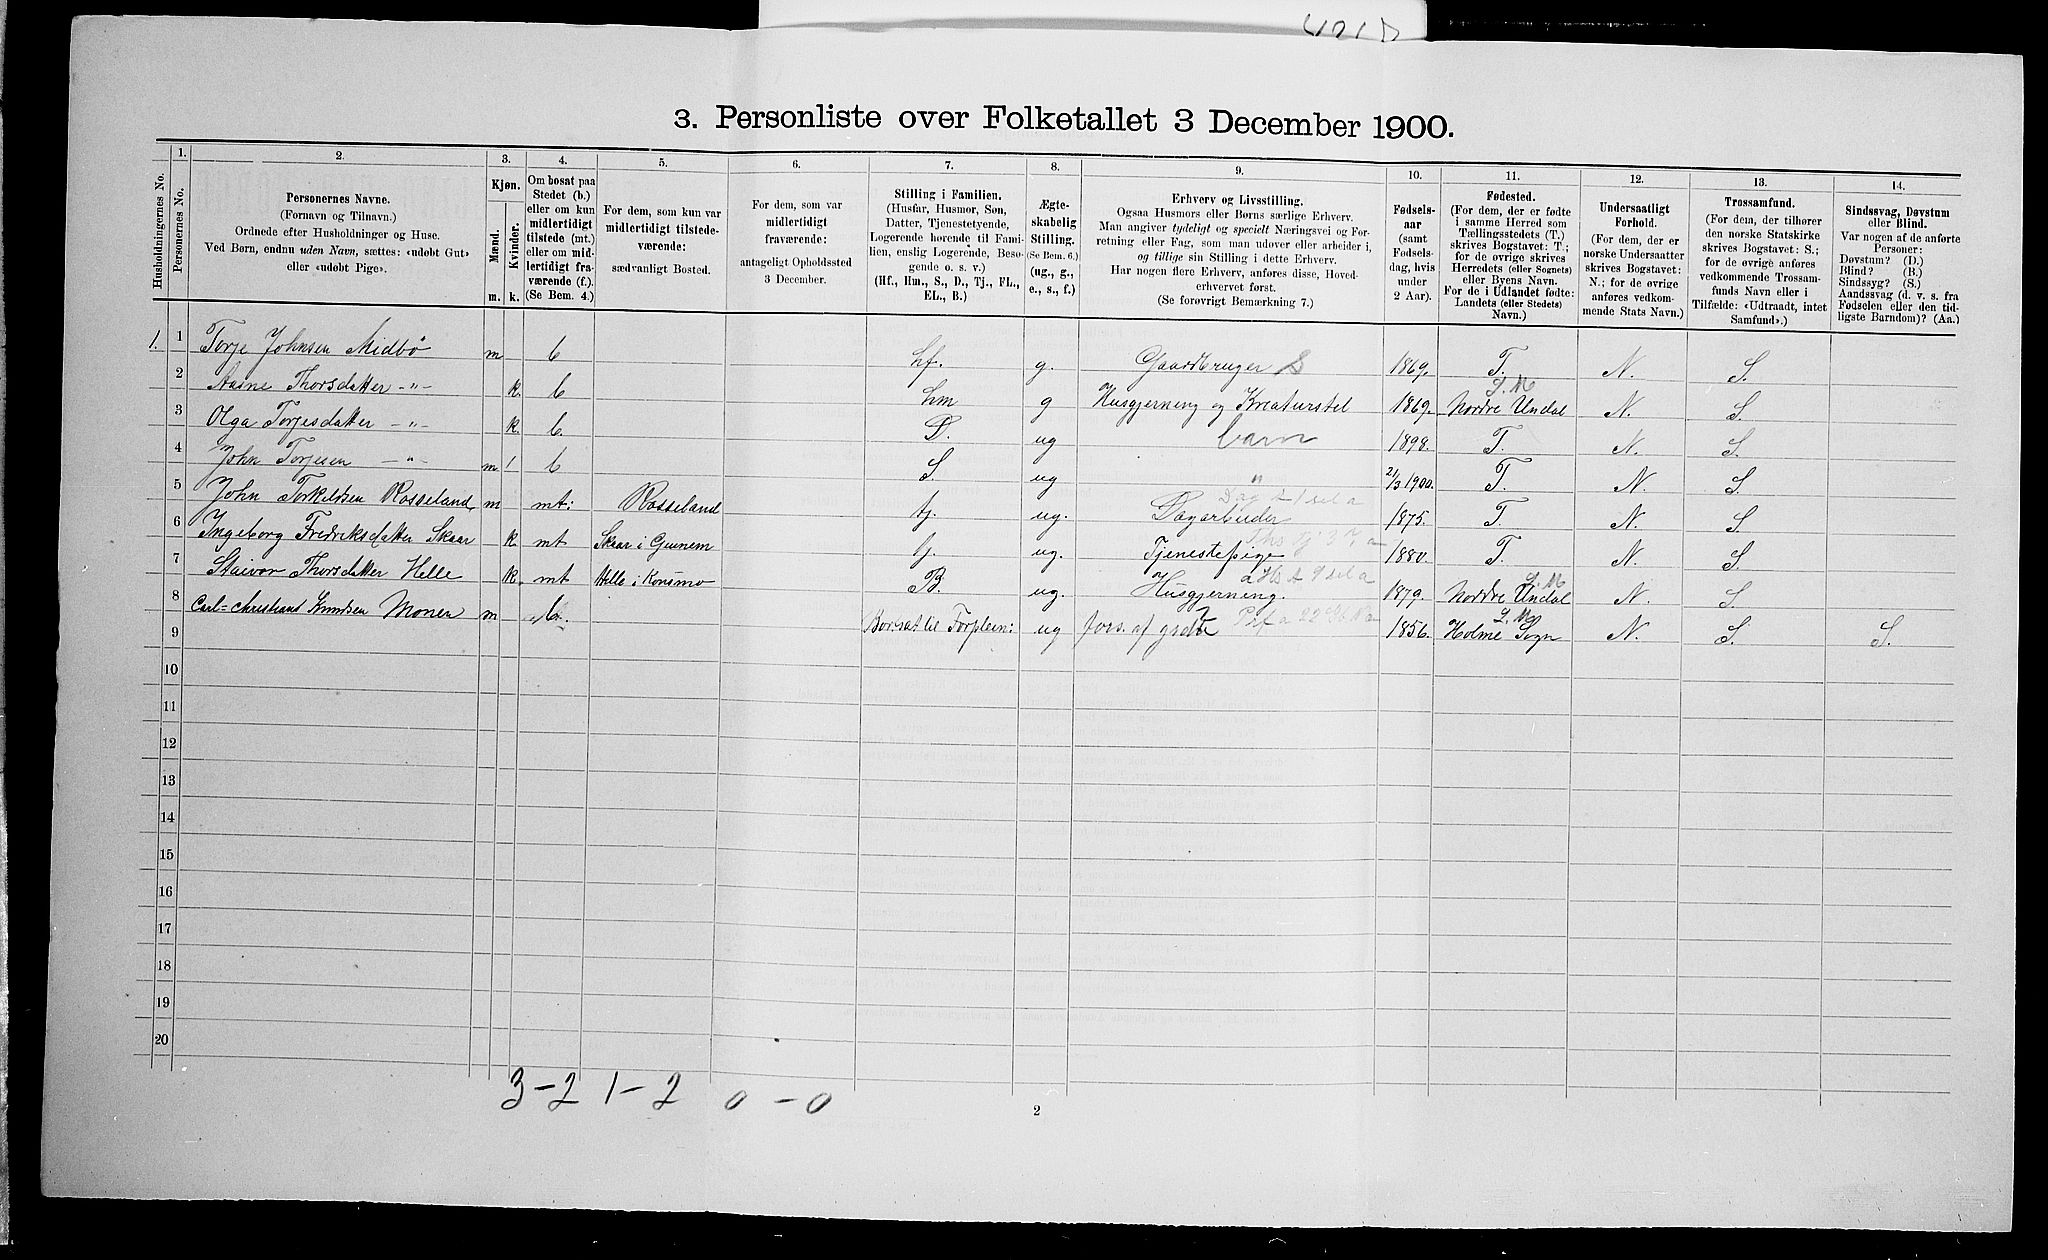 3. Personliste over Folketallet 3 December 1900.
Husholdningernes No.
1.
Personernes No.
2.
Personernes Navne.
(Fornavn og Tilnavn.)
Ordnede efter Husholdninger og Huse.
Ved Børn, endnu uden Navn, sættes: «udøbt Gut»
eller «udøbt Pige».
3.
Kjøn.
Mænd.
Kvinder.
m. k.
4.
Om bosat paa
Stedet (b.)
eller om kun
midlertidigt
tilstede (mt.)
eller om mid-
lertidigt fra-
værende (f.).
(Se Bem. 4.)
5.
For dem, som kun var
midlertidigt tilstede-
værende:
sædvanligt Bosted.
6.
For dem, som var
midlertidigt
fraværende:
antageligt Opholdssted
3 December.
7.
Stilling i Familien.
(Husfar, Husmor, Søn,
Datter, Tjenestetyende,
Logerende hørende til Fami-
lien, enslig Logerende, Besø-
gende o. s. v.)
(Hf., Hm., S., D., Tj., FL.,
EL., B.)
8.
Ægte-
skabelig
Stilling.
(Se Bem. 6.)
(ug., g.,
e., s., f.)
9.
Erhverv og Livsstilling.
Ogsaa Husmors eller Børns særlige Erhverv.
Man angiver tydeligt og specielt Næringsvei og For-
retning eller Fag, som man udøver eller arbeider i,
og tillige sin Stilling i dette Erhverv.
Har nogen flere Erhverv, anføres disse, Hoved-
erhvervet først.
(Se forøvrigt Bemærkning 7.)
10.
Fødsels-
aar
(samt
Fødsels-
dag, hvis
under
2 Aar).
11.
Fødested.
(For dem, der er fødte
i samme Herred som
Tællingsstedets (T.)
skrives Bogstavet: T.;
for de øvrige skrives
Herredets (eller Sognets)
eller Byens Navn.
For de i Udlandet fødte:
Landets (eller Stedets)
Navn.)
12.
Undersaatligt
Forhold.
(For dem, der er
norske Undersaatter
skrives Bogstavet:
N.; for de øvrige
anføres vedkom-
mende Stats Navn.)
13.
Trossamfund.
(For dem, der tilhører
den norske Statskirke
skrives Bogstavet: S.;
for de øvrige anføres
vedkommende Trossam-
funds Navn eller i
Tilfælde: «Udtraadt, intet
Samfund».)
14.
Sindssvag, Døvstum
eller Blind.
Var nogen af de anførte
Personer:
Døvstum? (D.)
Blind? (B.)
Sindssyg? (S.)
Aandssvag (d. v. s. fra
Fødselen eller den tid-
ligste Barndom)? (Aa.)
1. 1 Torje Johnsen Midbö m b hf. g. Gaardbruger 1869. T. N. S.
2 Aasne Thorsdatter -"- k. b hm g Husgjerning og Kreaturstel 1869. Nordre Undal N. S.
3 Olga Torjesdatter -"- k. b. D. ug barn 1898. T. N. S.
4 John Torjesen -"- m b S. ug " 2/3 1900. T. N. S.
5 John Torkeldsen Rosseland m mt: Rosseland tj. ug. Dagarbeider 1875. T. N. S.
6 Ingeborg Fredriksdatter Skaar k mt Skaar i tj. ug. Tjenestepige 1880. T. N. S.
7 Thorsdatter Helle k. mt Helle i Konsmo B. ug. Husgjerning. 1879. Nordre Undal N. S.
8 Carl-Christian Knudsen Monen m b. Bortsat til ug fors. af 1856. Holme Sogn N. S. S.
9
10
11
12
13
14
15
16
17
18
19
20
3-2 1-2 0-0
2